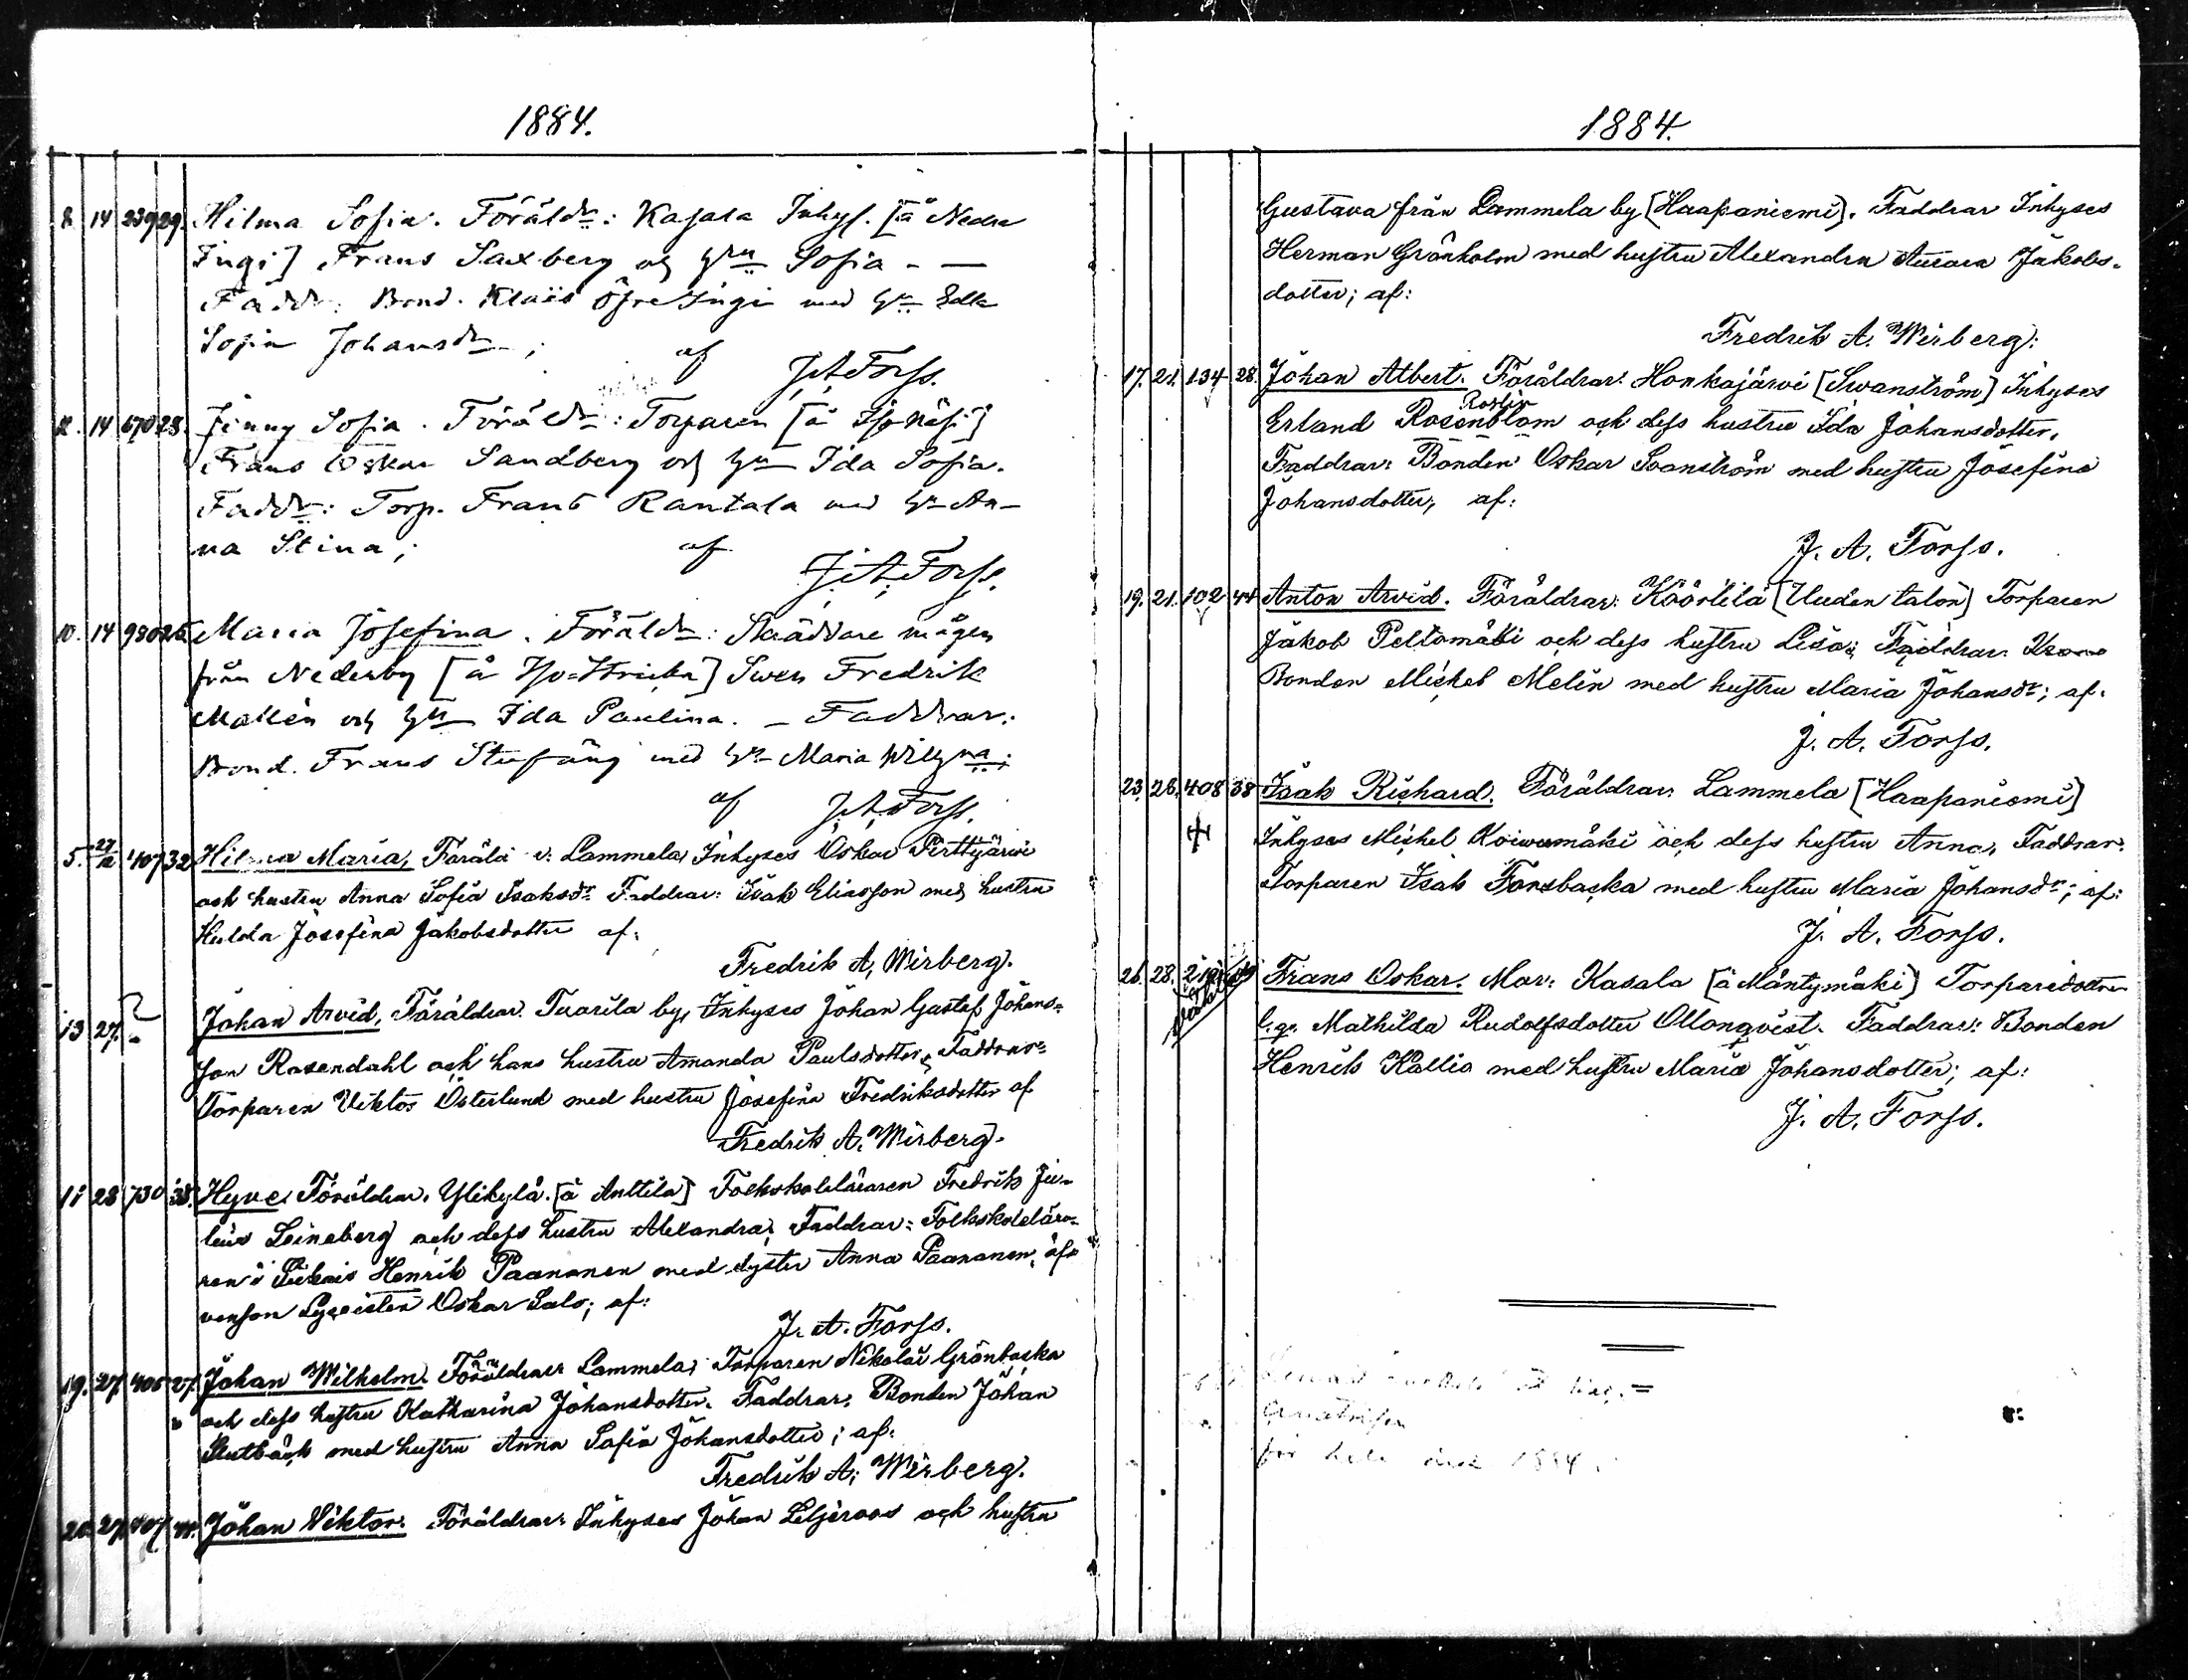 1884.
8. 14 239 29. Hilma Sofia. Föräldr: Kasala Inhys. [å Nedre
Ingi] Frans Saxberg och hru Sofia - —
Faddr: Bond. Klais Öfre Ingi med hru Edla
Sofia Johansdr; af J. A. Forss.
12. 14 670 28. Jenny Sofia. Föräldr: Torparen [å Iso Näsi]
Frans Oskar Sandberg och hru Ida Sofia.
Faddr: Torp. Frans Rantala med hru An-
na Stina; af
J. A. Forss.
10. 14 980 25 Maria Josefina. Föräldr: Skräddare mågen
från Nederby [å Iso-Struka] Swen Fredrik
Mallén och hru Ida Paulina. - Faddrar:
Bond. Frans Stufäng med hru Maria Wilhna;
af J. A. Forss.
5. 27/12 407 32 Hilma Maria, Föräld r: Lammela, Inhyses Oskar Pirttijärwi
och hustru Anna Sofia Isaksdr Faddrar: Isak Eliasson med hustru
Hulda Josefina Jakobsdotter af:
Fredrik A. Wirberg.
13 27. Johan Arvid, Föräldrar: Tuorila by, Inhyses Johan Gustaf Johans-
son Rosendahl och hans hustru Amanda Paulsdotter, Faddrar:
Torparen Viktor Österlund med hustru Josefina Fredriksdotter af
Fredrik A. Wirberg.
11 28 730 38. Hyve, Föräldrar: Ylikylä [å Anttila] Folkskoleläraren Fredrik Ju-
lius Leineberg och dess hustru Alexandra; Faddrar: Folkskolelära-
ren i Henrik Paananen med syster Anna Paananen, äf-
venson Lyceisten Oskar Salo; af:
J. A. Forss.
19. 27 406 27. Johan Wilhelm. Föräldrar: Lammela; Torparen Nikolai Grönbacka
och dess hustru Katharina Johansdotter. Faddrar: Bonden Johan
Slutbäck med hustru Anna Sofia Johansdotter; af:
Fredrik A. Wirberg.
20. 27 407 Johan Viktor. Föräldrar: Inhyses Johan Liljeroos och hustru
1884.
Gustava från Lammela by [Haapaniemi]. Faddrar Inhyses
Herman Grönholm med hustru Alexandra Aurora Jakobs-
dotter; af:
Fredrik A. Wirberg.
17. 21. 134 28. Johan Albert. Föräldrar: Honkajärvi [Swanström] Inhyses
Roslin
Erland Rosenblom och dess hustru Ida Johansdotter.
Faddrar: Bonden Oskar Svanström med hustru Josefina
Johansdotter, af:
J. A. Forss.
19. 21. 102 44 Anton Arvid. Föräldrar: Köörtilä [Uuden talon] Torparen
Jakob Peltomäki och dess hustru Lisa; Faddrar:
Bonden Michel Melin med hustru Maria Johansdr; af:
J. A. Forss.
23. 26. 408 38 Isak Richard. Föräldrar: Lammela [Haapaniemi]
Inhyses Michel Koiwumäki och dess hustru Anna, Faddrar:
Torparen Isak Forsbacka med hustru Maria Johansdr; af:
J. A. Forss.
26. 28. Frans Oskar. Mor: Kasala [å Mäntymäki] Torparedottren
l. q. Mathilda Rudolfsdotter Ollonqvist. Faddrar: Bonden
Henrik Kallio med hustru Maria Johansdotter; af:
J. A. Forss.
för hela året 1884.